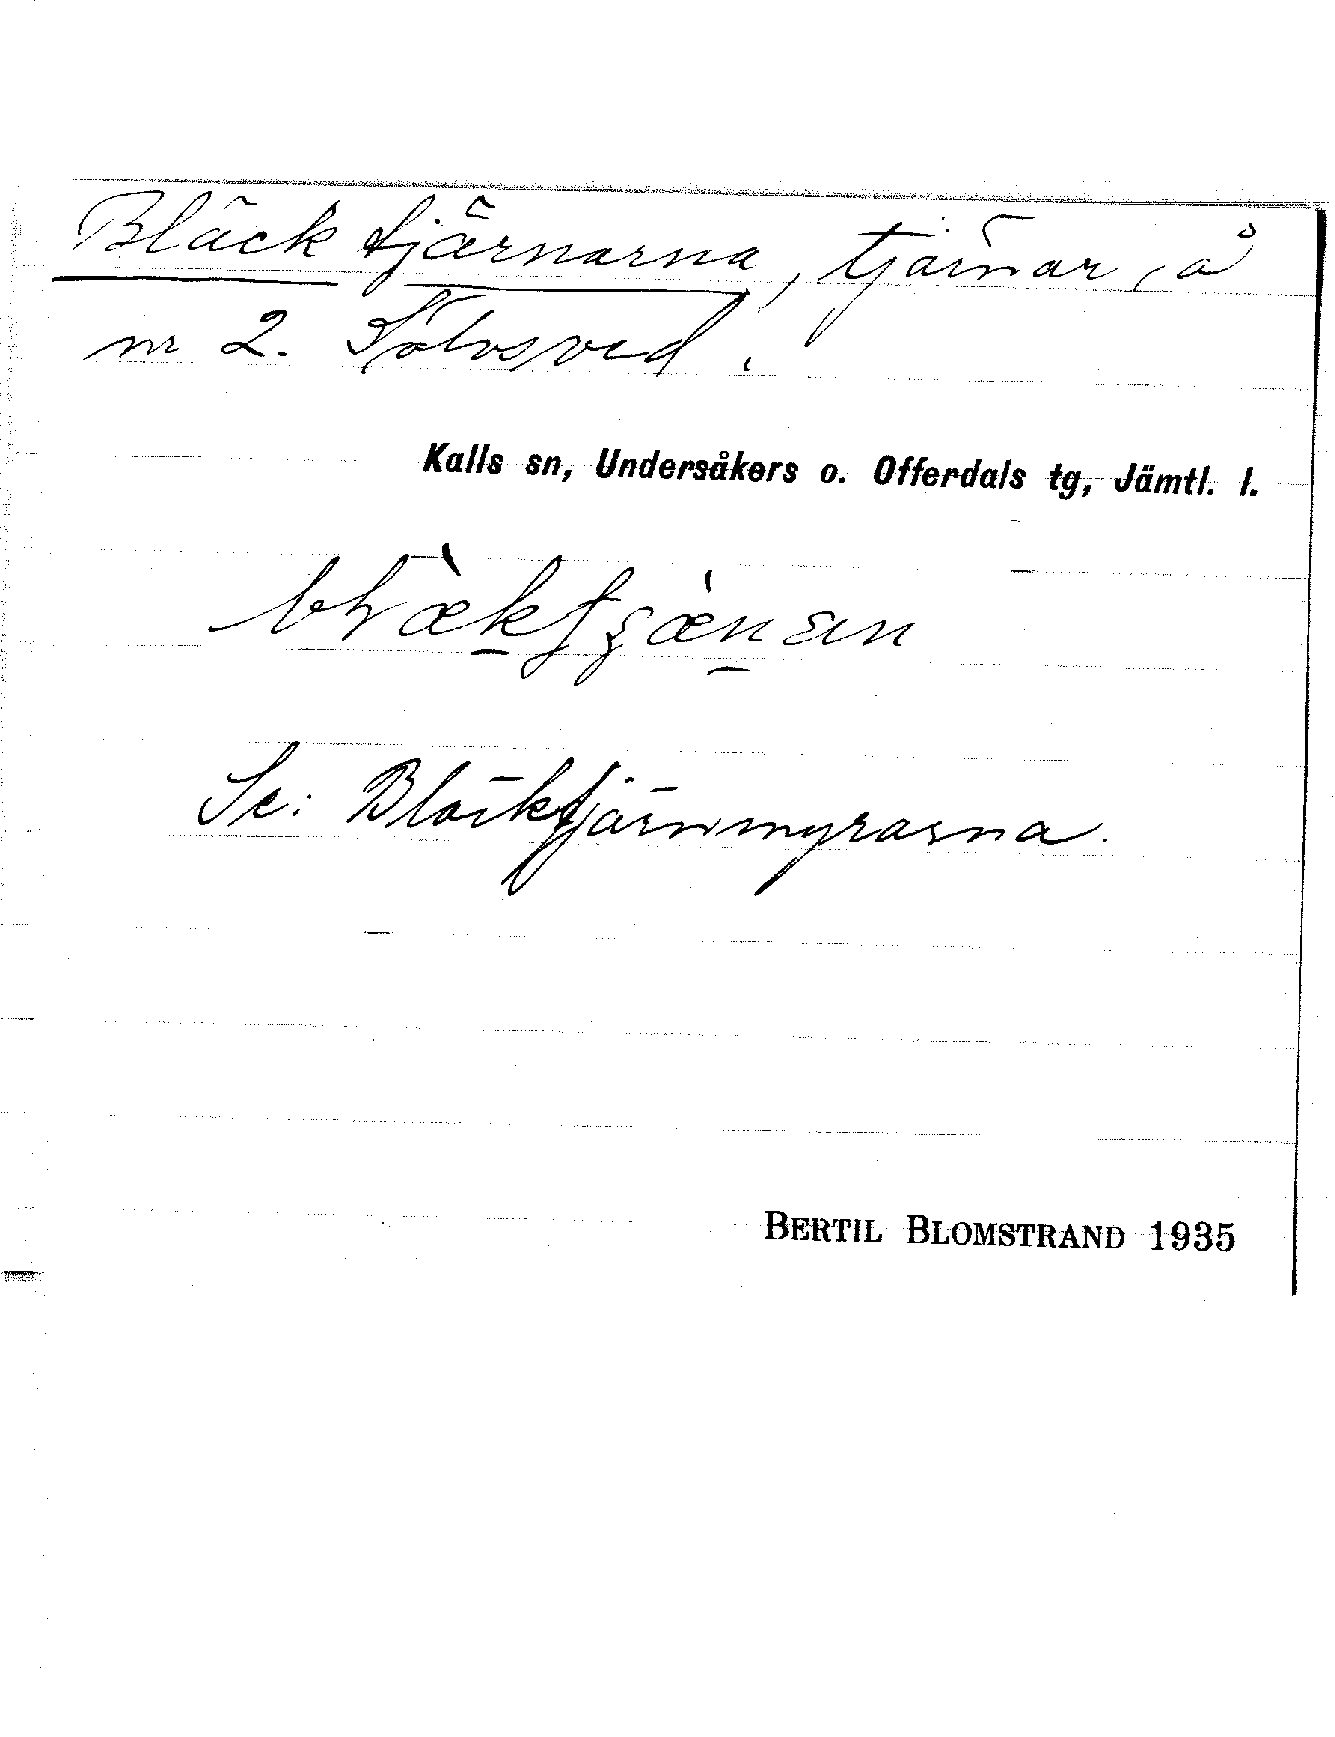 Bläcktjärnarna, tjärnar, å
nr 2. Sölvsved.
Kalls sn, Undersåkers o. Offerdals tg, Jämtl. l.
Se: Bläcktjärnmyrarna.
BERTIL BLOMSTRAND 1935